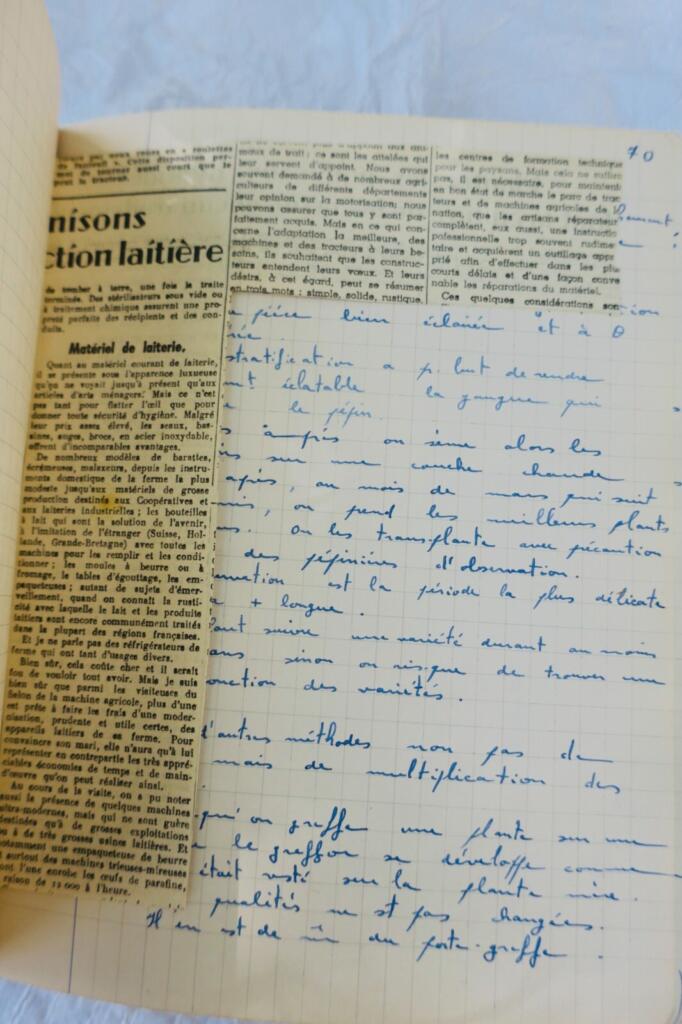 70
teurs par nous venus en « roulettes
de fauteuil ». Cette disposition per-
met de tourner aussi court que le
peut le tracteur.
nisons
ction laitière
de tomber à terre, une fois la traite
terminée. Des stérilisateurs sous vide ou
à traitement chimique assurent une pro-
preté parfaite des récipients et des con-
duits.
Matériel de laiterie,
Quant au matériel courant de laiterie,
il se présente sous l'apparence luxueuse
qu'on ne voyait jusqu'à présent qu'aux
articles d'arts ménagers. Mais ce n'est
pas tant pour flatter l'œil que pour
donner toute sécurité d'hygiène. Malgré
leur prix assez élevé, les seaux, bas-
sines, auges, brocs, en acier inoxydable,
offrent d'incomparables avantages.
De nombreux modèles de barattes,
écrémeuses, malaxeurs, depuis les instru-
ments domestique de la ferme la plus
modeste jusqu'aux matériels de grosse
production destinés aux Coopératives et
aux laiteries industrielles ; les bouteilles
à lait qui sont la solution de l'avenir,
à l'imitation de l'étranger (Suisse, Hol-
lande, Grande-Bretagne) avec toutes les
machines pour les remplir et les condi-
tionner ; les moules à beurre ou à
fromage, le tables d'égouttage, les em-
paqueteuses ; autant de sujets d'émer-
veillement, quand on connaît la rusti-
cité avec laquelle le lait et les produits
laitiers sont encore communément traités
dans la plupart des régions françaises.
Et je ne parle pas des réfrigérateurs de
ferme qui ont tant d'usages divers.
Bien sûr, cela coûte cher et il serait
fou de vouloir tout avoir. Mais je suis
bien sûr que parmi les visiteuses du
Salon de la machine agricole, plus d'une
est prête à faire les frais d'une moder-
nisation, prudente et utile certes, des
appareils laitiers de sa ferme. Pour
convaincre son mari, elle n'aura qu'à lui
représenter en contrepartie les très appré-
ciables économies de temps et de main-
d'œuvre qu'on peut réaliser ainsi.
Au cours de la visite, on a pu noter
aussi la présence de quelques machines
ultra-modernes, mais qui ne sont guère
destinées qu'à de grosses exploitations
ou à de très grosses usines laitières. Et
notamment une empaqueteuse de beurre
et surtout des machines trieuses-mireuses
dont l'une enrobe les œufs de parafine,
à raison de 12 000 à l'heure.
maux de trait ; ce sont les attelées qui
leur servent d'appoint. Nous avons
souvent demandé à de nombreux agri-
culteurs de différents départements
leur opinion sur la motorisation; nous
pouvons assurer que tous y sont par-
faitement acquis. Mais en ce qui con-
cerne l'adaptation la meilleure, des
machines et des tracteurs à leurs be-
soins, ils souhaitent que les construc-
teurs entendent leurs vœux. Et leurs
désirs, à cet égard, peut se résumer
en trois mots : simple, solide, rustique.
les centres de formation technique
pour les paysans. Mais cela ne suffira
pas, il est nécessaire, pour maintenir
en bon état de marche le parc de trac
teurs et de machines agricoles de la
nation, que les artisans réparateur
complètent, eux aussi, une instructio
professionnelle trop souvent rudime
taire et acquièrent un outillage appr
prié afin d'effectuer dans les plus
courts délais et d'une façon conve
nable les réparations du matériel.
Ces quelques considérations son
pièce bien éclairée et à θ
stratification a p. but de rendre
éclatable la gangue qui
le pépin.
après on sème alors les
sur une couche chaude
après, au mois de mars qui suit
on prend les meilleurs plants
On les transplante avec précaution
des pépinières d'observation.
est la période la plus délicate
+ longue.
faut suivre une variété durant au moins
ans sinon on risque de trouver une
des variétés.
d'autres méthodes non pas de
mais de multiplication des
qu'on greffe une plante sur une
le greffon se développe comme
était resté sur la plante mère.
qualités ne st pas changées.
Il en est de m̂ du porte-greffe.